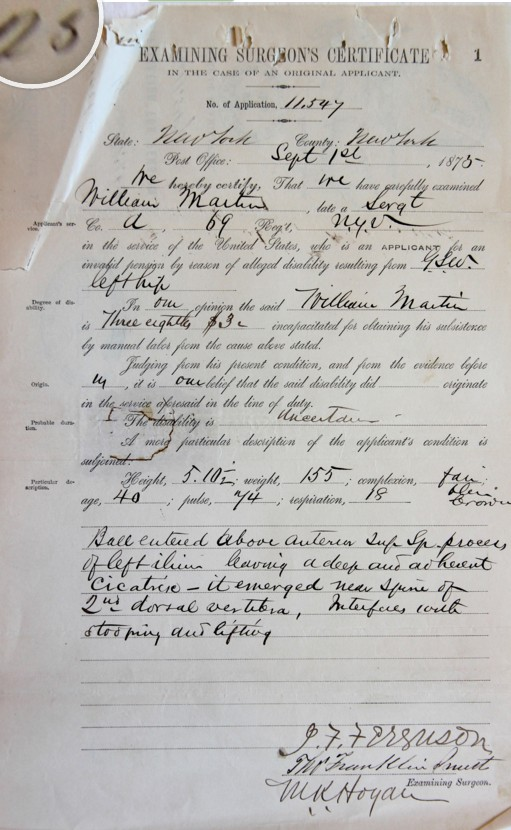 EXAMINING SURGEON'S CERTIFICATE 1
IN THE CASE OF AN ORIGINAL APPLICANT.
No. of Application, 11.547
State: New York County: New York
Post Office: Sept 1st , 1875
We hereby certify, That we have carefully examined
William Martin , late a Sergt
Applicant's service. Co. A 69 Reg't, N.Y.V.
in the service of the United States, who is an APPLICANT for an
invalid pension by reason of alleged disability resulting from G.S.W.
left hip
Degree of disability. In our opinion the said William Martin
is Three eighths incapacitated for obtaining his subsistence
by manual labor from the cause above stated.
Judging from his present condition, and from the evidence before
Origin. , it is our belief that the said disability did originate
in the service aforesaid in the line of duty.
Probable duration. The disability is uncertain
A more particular description of the applicant's condition is
subjoined:
Particular description. Height, 5.10½; weight, 155; complexion, fair;
age, 40; pulse, 74; respiration, 18
Ball entered above anterior sup Sp. process
of left ilium leaving a deep and adherent
cicatrix - it emerged near spine of
2nd dorsal vertebra, Interferes with
stooping and lifting
J. F. Ferguson
Franklin Smith
Examining Surgeon.
M K Hogan